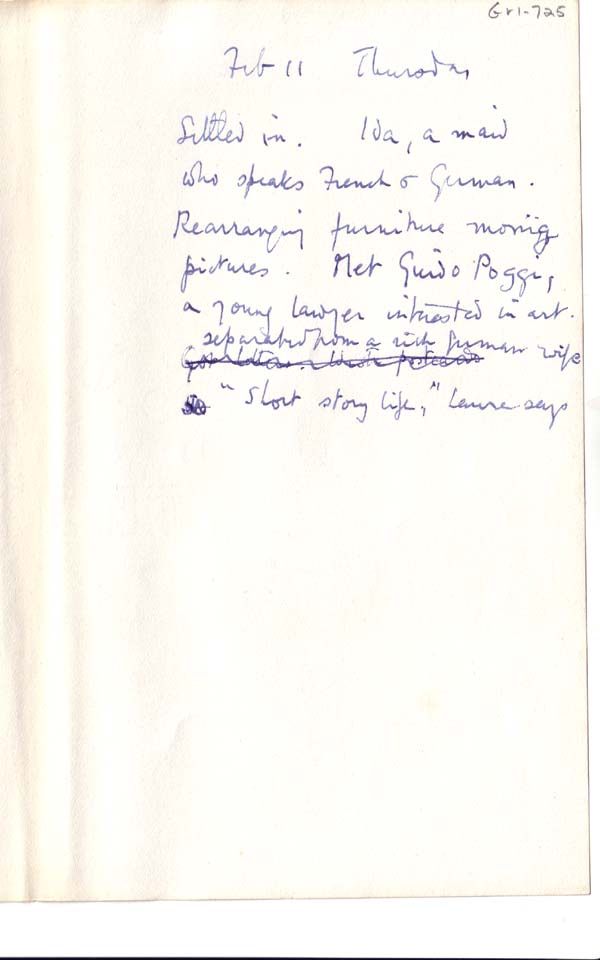 Gr1-725
Feb 11 Thursday
Settled in. Ida, a maid
who speaks French & German.
Rearranging furniture moving
pictures. Met Guido Poggi,
a young lawyer interested in art.
separated from a rich German wife
"Short story life," Laura says